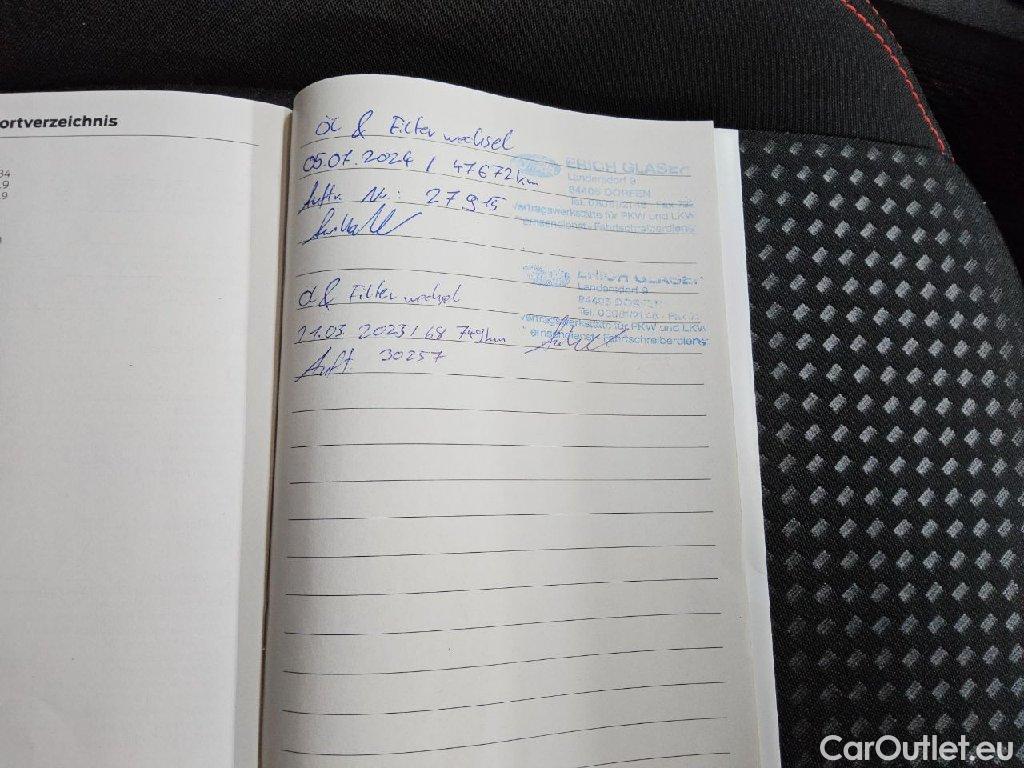 ortverzeichnis
Öl & Filter wechsel
05.07.2024 / 47672km
Auftr. Nr.: 27919
ERICH GLASER
Landersdorf 9
84405 DORFEN
Tel.
Vertragswerkstätte für PKW und LKW
Fahrtschreiberdienst
Öl & Filter wechsel
21.03 2023 / 68 749km
Auft. 30257
ERICH GLASER
Landersdorf 9
84405 DORFEN
Tel.
Vertragswerkstätte für PKW und LKW
Fahrtschreiberdienst
CarOutlet.eu